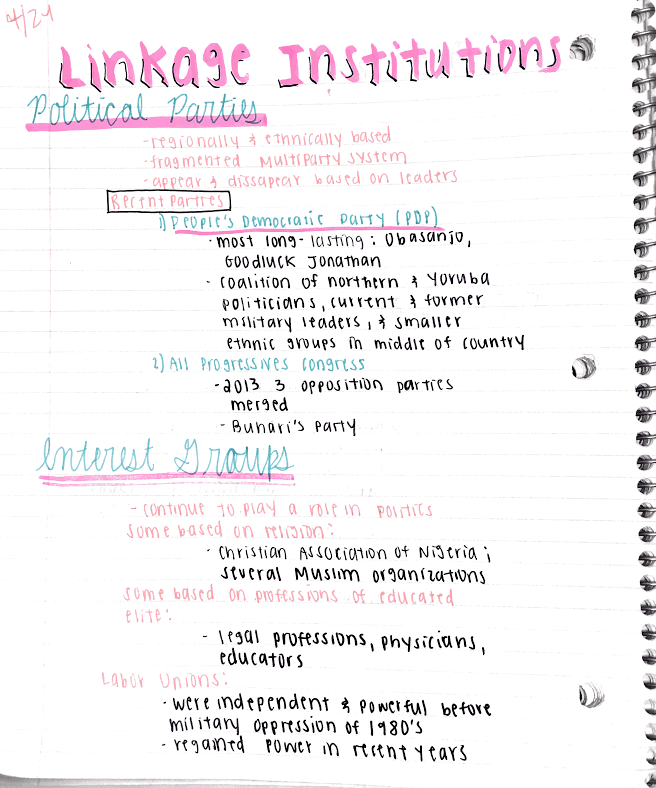 4/24
Linkage Institutions
Political Parties
-regionally & ethnically based
-fragmented multiparty system
-appear & dissapear based on leaders
Recent Parties
1) People's Democratic Party (PDP)
·most long-lasting: Obasanjo,
Goodluck Jonathan
·coalition of northern & Yoruba
politicians, current & former
military leaders, & smaller
ethnic groups in middle of country
2) All Progressives Congress
-2013 3 opposition parties
merged
- Buhari's party
Interest Groups
- continue to play a role in politics
some based on religion:
· Christian Association of Nigeria;
several Muslim organizations
some based on professions of educated
elite:
- legal professions, physicians,
educators
Labor Unions:
·were independent & powerful before
military oppression of 1980's
·regained power in recent years